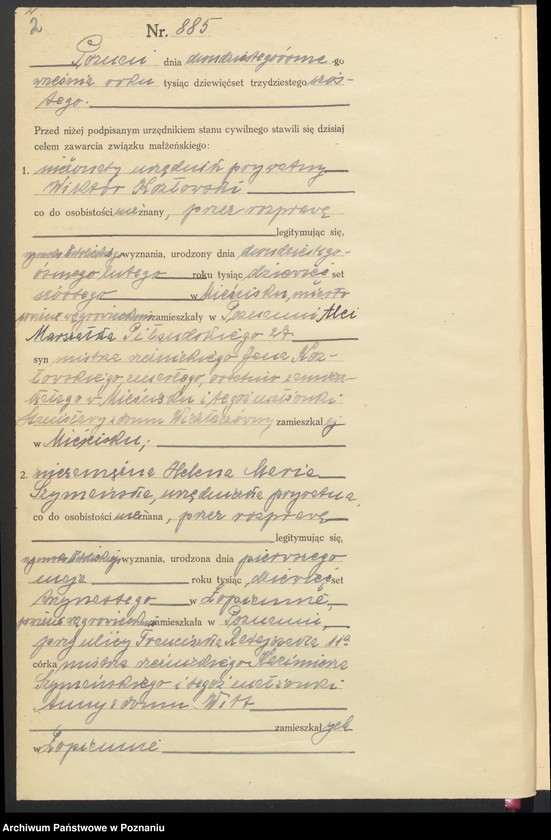 2
Nr. 885
Poznań dnia dwudziestegoósme-go
września roku tysiąc dziewięćset trzydziestego szós-
tego.
Przed niżej podpisanym urzędnikiem stanu cywilnego stawili się dzisiaj
celem zawarcia związku małżeńskiego:
1. nieżonaty urzędnik prywatny
Wiktor Kozłowski
co do osobistości nieznany, przez rozprawę
legitymując się,
wyznania, urodzony dnia dwudziestego-
ósmego lutego roku tysiąc dziewięćset
szóstego w Mieścisku, miasto
zamieszkały w Poznaniu Alei
Marszałka Piłsudskiego 27
syn mistrza rzeźnickiego Jana Koz-
łowskiego, zmarłego, ostatnio zamiesz-
kałego w Mieścisku i tegoż małżonki
Stanisławy z domu zamieszkałej
w Mieścisku;
2. niezamężna Helena Maria
Szymańska, urzędniczka prywatna,
co do osobistości nieznana, przez rozprawę
legitymując się,
wyznania, urodzona dnia pierwszego
maja roku tysiąc dziewięćset
trzynastego w Łopiennie,
zamieszkała w Poznaniu,
przy ulicy Franciszka Ratajczaka 11a
córka mistrza rzeźnickiego Kazimierza
Szymańskiego i tegoż małżonki
Anny z domu Witt
zamieszkałych
w Łopiennie
Archiwum Państwowe w Poznaniu